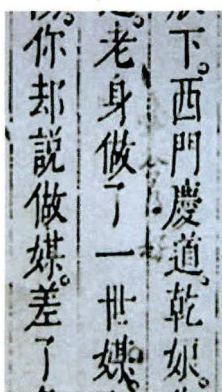 下。西門慶道。乾娘。
老身做了一世媒。
你却說做媒差了